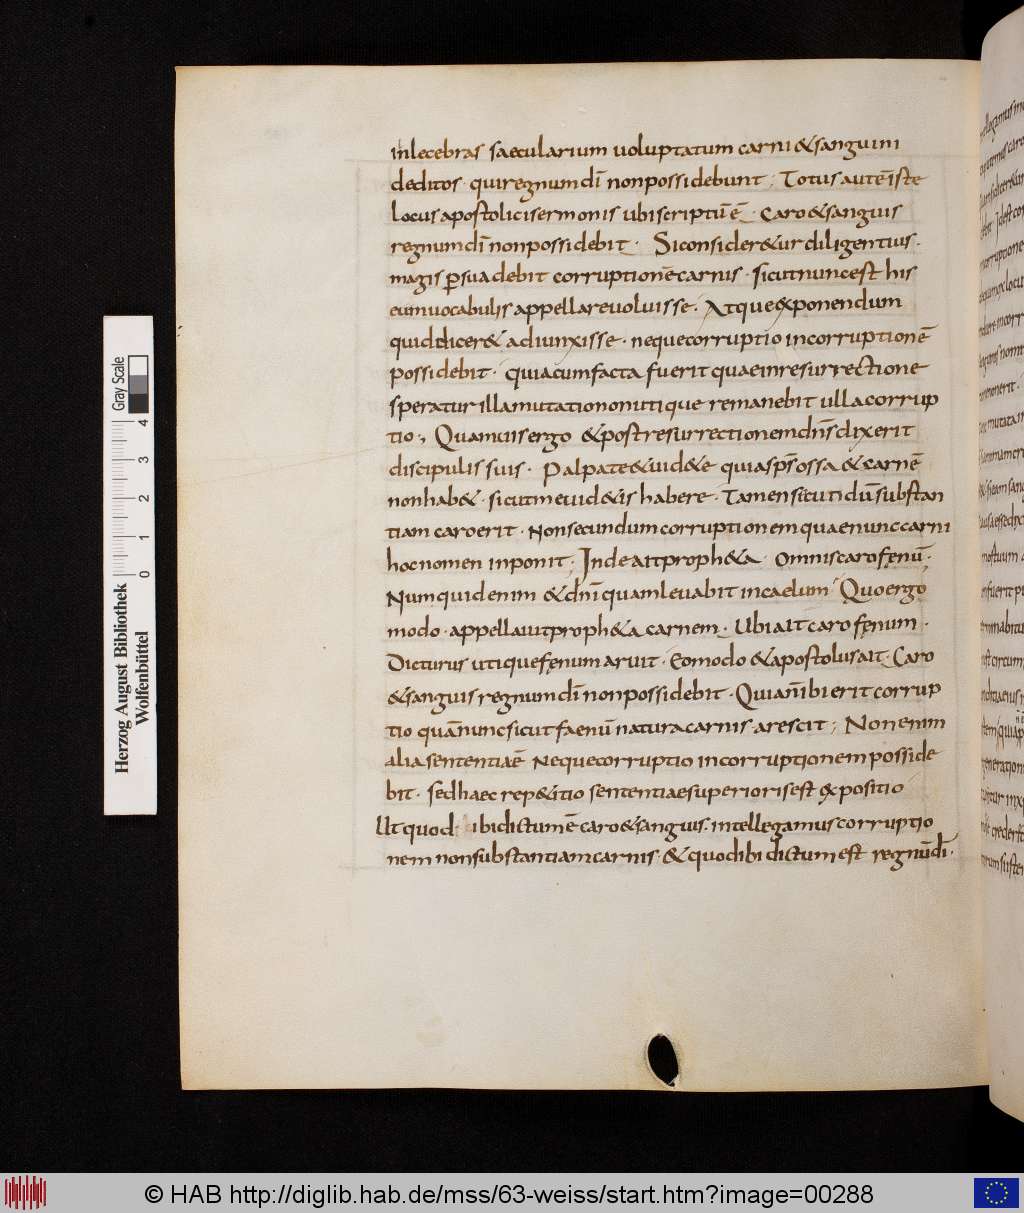 inlecebras saecularium uoluptatum carni & sanguini
deditos · qui regnum dī non possidebunt ; Totus autē iste
locus apostolici sermonis ubi scriptū ē · Caro & sanguis
regnum dī non possidebit · Si consider&ur diligentius ·
magis p̱suadebit corruptionē carnis · sicut nunc est his
eum uocabulis appellare uoluisse · Atque exponendum
quid dicer& adiunxisse · neque corruptio incorruptionē
possidebit · quia cum facta fuerit quae in resurrectione
speratur illa mutatio non utique remanebit ulla corrup
tio ·, Quamuis ergo & post resurrectionem dn̄s dixerit
discipulis suis · Palpate & uid&e quia sp̄s ossa & carnē
non hab& · sicut me uid&is habere · Tamen secuti dū substan
tiam caro erit · Non secundum corruptionem quae nunc carni
hoc nomen inponit ; Inde ait proph&a · Omnis caro fęnū ·
Numquid enim & dn̄i quam leuabit in caelum Quo ergo
modo · appellauit proph&a carnem · Ubi ait caro fęnum ·
Dicturus utique fęnum aruit · Eo modo & apostolus ait · Caro
& sanguis regnum dī non possidebit · Quia n̄ ibi erit corrup
tio quā nunc sicut faenū natura carnis arescit ; Non enim
alia sententia ē Neque corruptio incorruptionem posside
bit · sed haec rep&itio sententiae superioris est expositio
Ut quod ibi dictum ē caro & sanguis · intellegamus corruptio
nem non substantiam carnis · & quod ibi dictum est regnū dī ·
Herzog August Bibliothek
Wolfenbüttel
0 1 2 3 4
Gray Scale
© HAB http://diglib.hab.de/mss/63-weiss/start.htm?image=00288